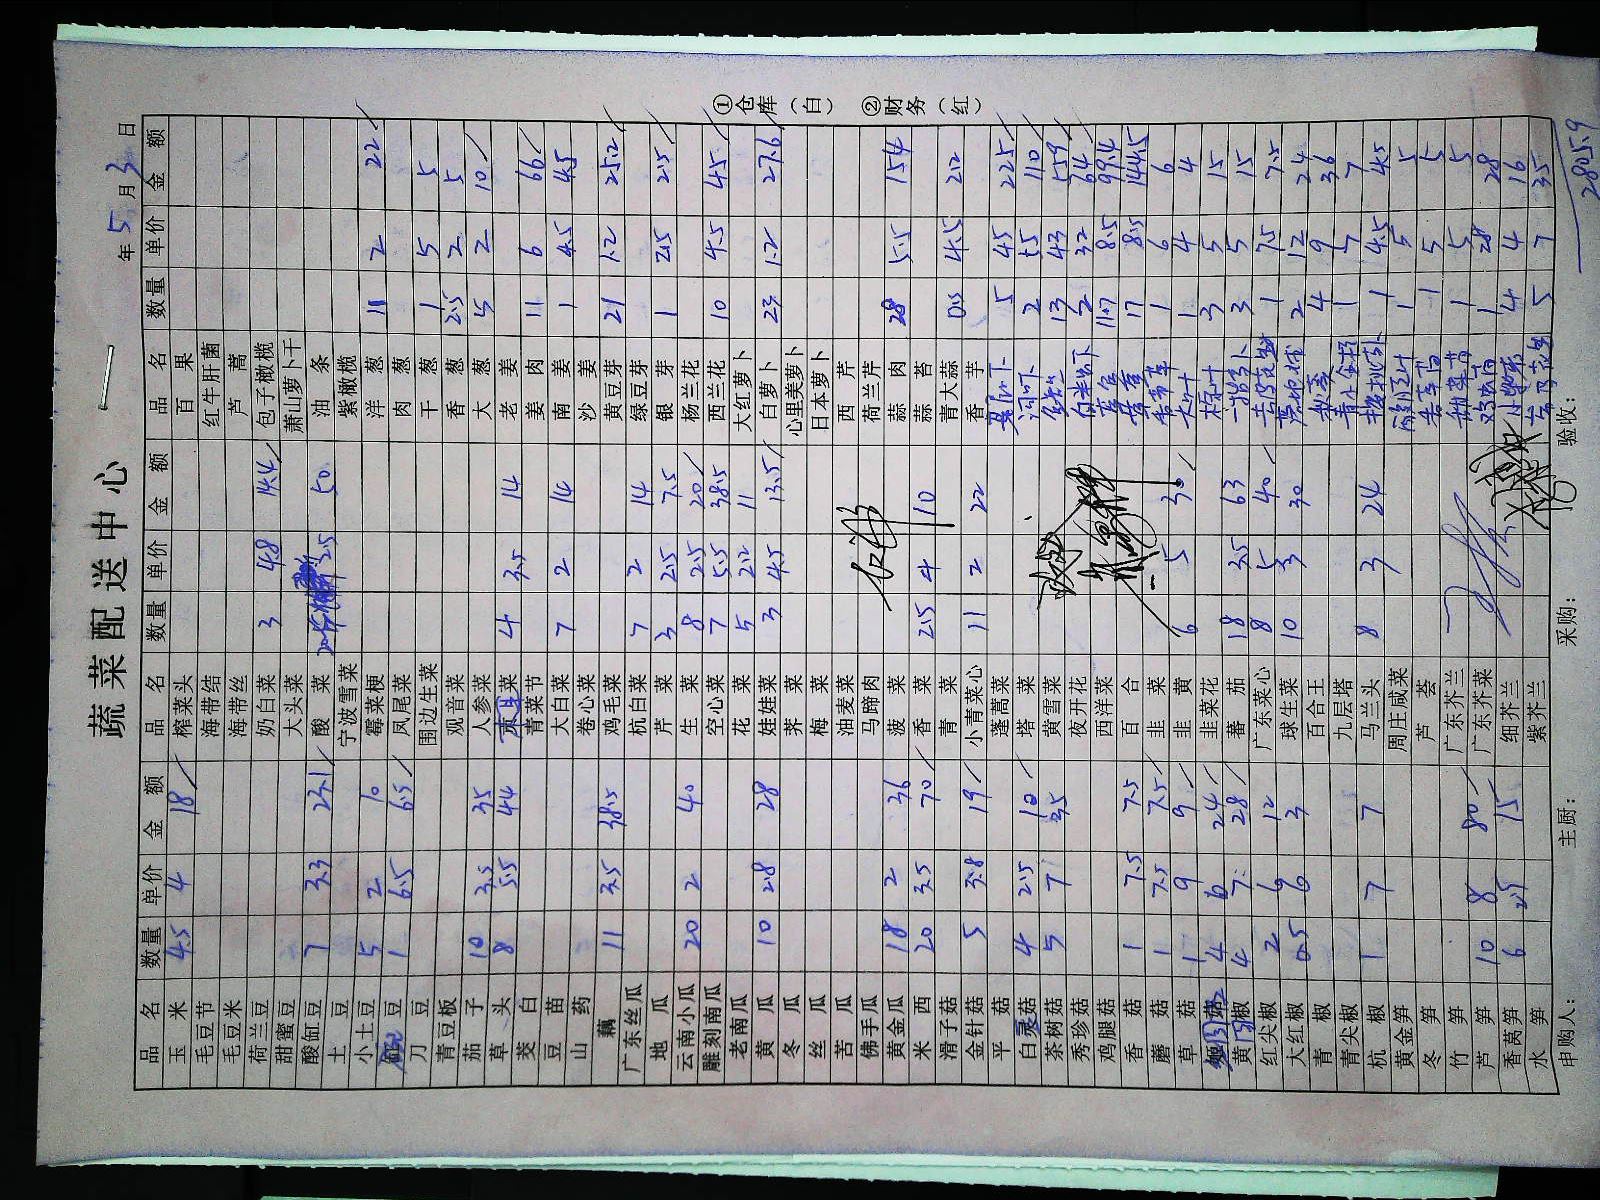 蔬菜配送中心
年5月3日
品名 数量 单价 金额 品名 数量 单价 金额 品名 数量 单价 金额
玉米 4.5 4 18 榨菜头 百果
毛豆节 海带结 红牛肝菌
毛豆米 海带丝 芦蒿
荷兰豆 奶白菜 3 4.8 14.4 包子橄榄
甜蜜豆 大头菜 萧山萝卜干
酸缸豆 7 3.3 23.1 酸菜 2.5 50 油条
土豆 宁波雪菜 紫橄榄
小土豆 5 2 10 霉菜梗 洋葱 11 2 22
豆 1 6.5 6.5 凤尾菜 肉葱
刀豆 围边生菜 干葱 1 5 5
青豆板 观音菜 香葱 2.5 2 5
茄子 10 3.5 35 人参菜 大葱 5 2 10
草头 8 5.5 44 菜 4 3.5 14 老姜
茭白 青菜节 姜肉 11 6 66
豆苗 大白菜 7 2 14 南姜 1 4.5 4.5
山药 卷心菜 沙姜
藕 11 3.5 38.5 鸡毛菜 黄豆芽 21 1.2 25.2
广东丝瓜 杭白菜 7 2 14 绿豆芽
地瓜 芹菜 3 2.5 7.5 银芽 1 2.5 2.5
云南小瓜 20 2 40 生菜 8 2.5 20 杨兰花
雕刻南瓜 空心菜 7 5.5 38.5 西兰花 10 4.5 45
老南瓜 花菜 5 2.2 11 大红萝卜
黄瓜 10 2.8 28 娃娃菜 3 4.5 13.5 白萝卜 23 1.2 27.6
冬瓜 荠菜 心里美萝卜
丝瓜 梅菜 日本萝卜
苦瓜 油麦菜 西芹
佛手瓜 马蹄肉 荷兰芹
黄金瓜 18 2 36 菠菜 蒜肉 28 5.5 154
米西 20 3.5 70 香菜 2.5 4 10 蒜苔
滑子菇 青菜 青大蒜 0.5 4.5 2.2
金针菇 5 3.8 19 小青菜心 11 2 22 香芋
平菇 蓬蒿菜 5 45 225
白灵菇 4 2.5 10 塔菜 2 55 110
茶树菇 5 7 35 黄雪菜 13 43 559
秀珍菇 夜开花 2 32 64
鸡腿菇 西洋菜 11.7 8.5 99.4
香菇 1 7.5 7.5 百合 17 8.5 144.5
蘑菇 1 7.5 7.5 韭菜 6 5 30 1 6 6
草菇 1 9 9 韭黄 1 4 4
菇 4 6 24 韭菜花 3 5 15
黄椒 4 7 28 蕃茄 18 3.5 63 3 5 15
红尖椒 2 6 12 广东菜心 8 5 40 1 7.5 7.5
大红椒 0.5 6 3 球生菜 10 3 30 2 12 24
青椒 百合王 4 9 36
青尖椒 九层塔 1 7 7
杭椒 1 7 7 马兰头 8 3 24 1 4.5 4.5
黄金笋 周庄咸菜 1 5 5
冬笋 芦荟 1 5 5
竹笋 广东芥兰 1 5 5
芦笋 10 8 80 广东芥菜 1 28 28
香莴笋 6 2.5 15 细芥兰 4 4 16
水笋 紫芥兰 5 7 35
申购人： 主厨： 采购： 验收：
2805.9
①仓库（白） ②财务（红）